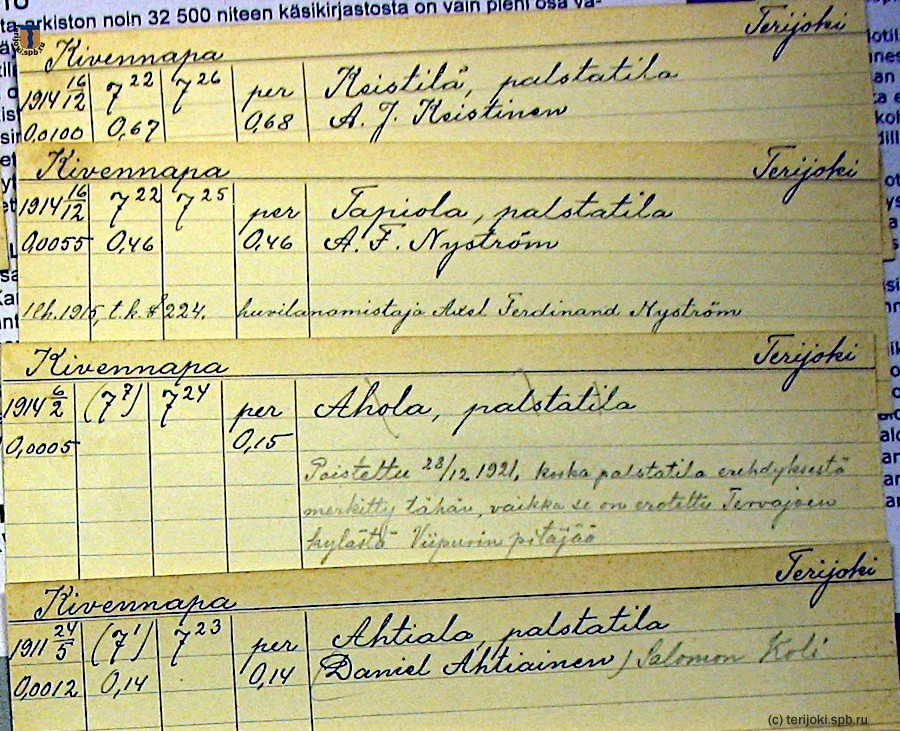 ta arkiston noin 32 500 niteen käsikirjastosta on vain pieni osa va-
terijoki.spb.ru
Kivennapa Terijoki
1914 16/12 7 22 7 26 per Keistilä, palstatila
0,0100 0,67 0,68 A. J. Keistinen
Kivennapa Terijoki
1914 16/12 7 22 7 25 per Tapiola, palstatila
0,0055 0,46 0,46 A. F. Nyström
Ilh. 1915, t.k. § 224. huvilanomistaja Axel Ferdinand Nyström
Kivennapa Terijoki
1914 6/2 (7 7) 7 24 per Ahola, palstatila
0,0005 0,15
Poistettu 28/12 1921, koska palstatila erehdyksestä
merkitty tähän, vaikka se on erotettu Tervajoen
kylästä Viipurin pitäjää
Kivennapa Terijoki
1911 24/5 (7 1) 7 23 per Ahtiala, palstatila
0,0012 0,14 0,14 (Daniel Ahtiainen) Salomon Koli
(c) terijoki.spb.ru